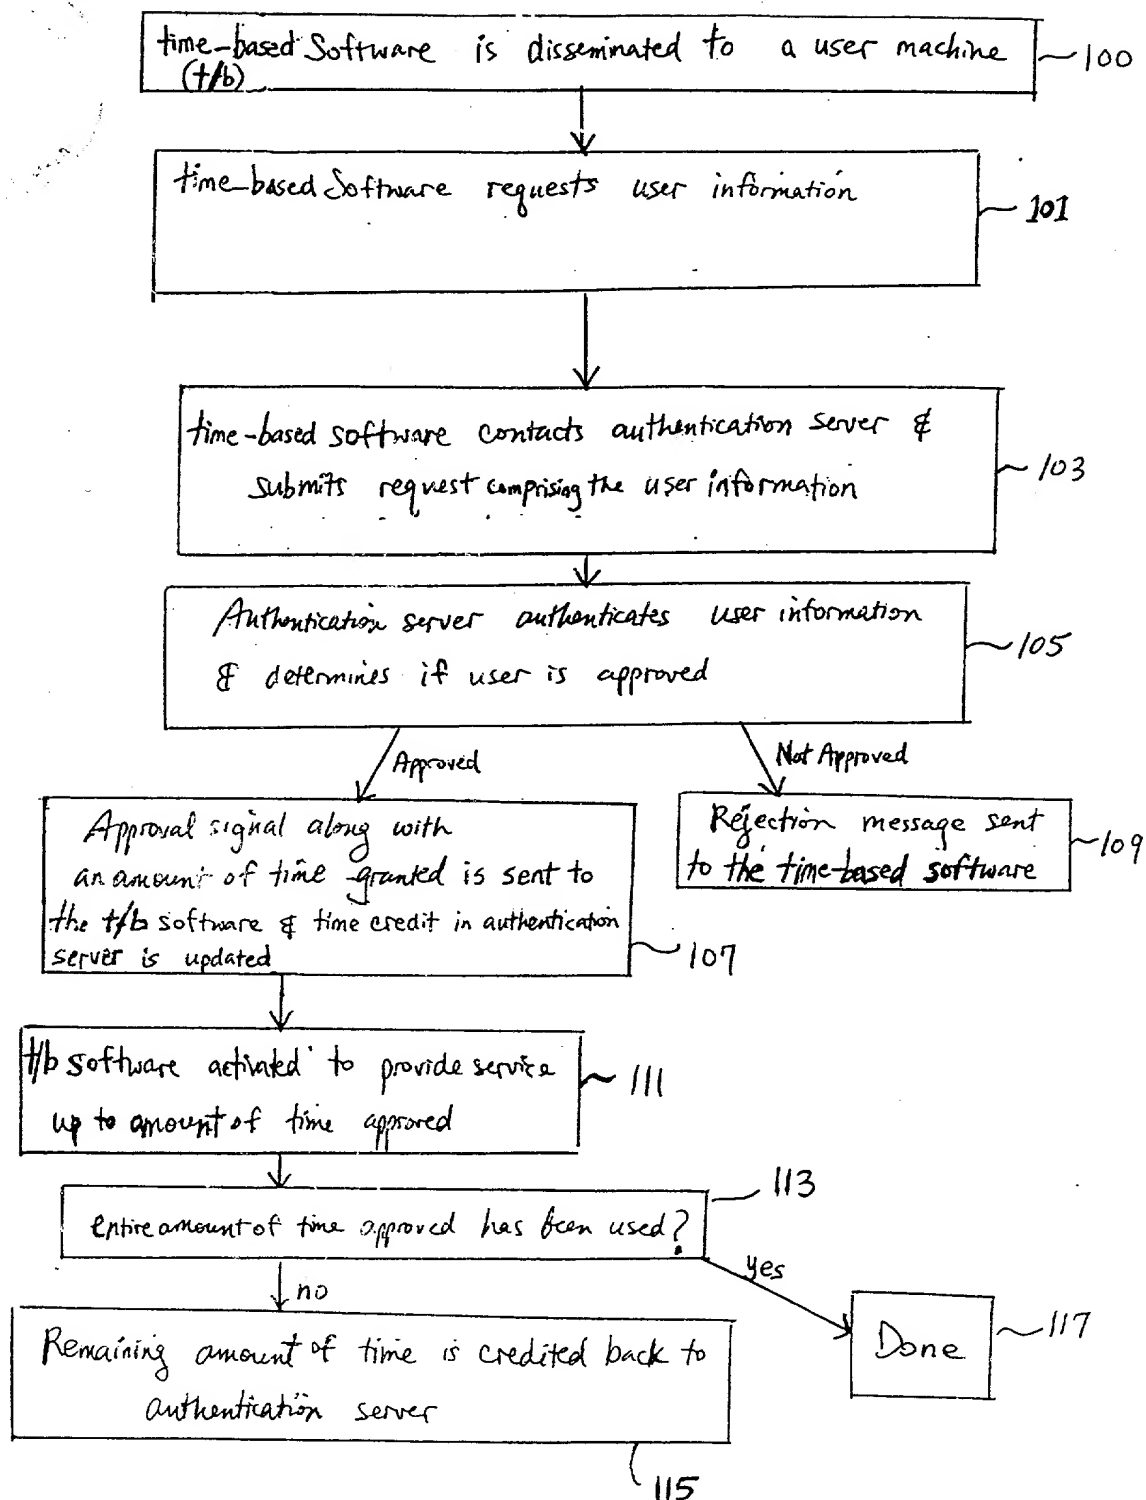 time-based Software is disseminated to a user machine
(t/b)
100
time-based Software requests user information
101
time-based software contacts authentication server &
submits request comprising the user information
103
Authentication server authenticates user information
& determines if user is approved
105
Approved
Not Approved
Approval signal along with
an amount of time granted is sent to
the t/b software & time credit in authentication
server is updated
107
Rejection message sent
to the time-based software
109
t/b software activated to provide service
up to amount of time approved
111
entire amount of time approved has been used?
113
no
yes
Remaining amount of time is credited back to
authentication server
115
Done
117